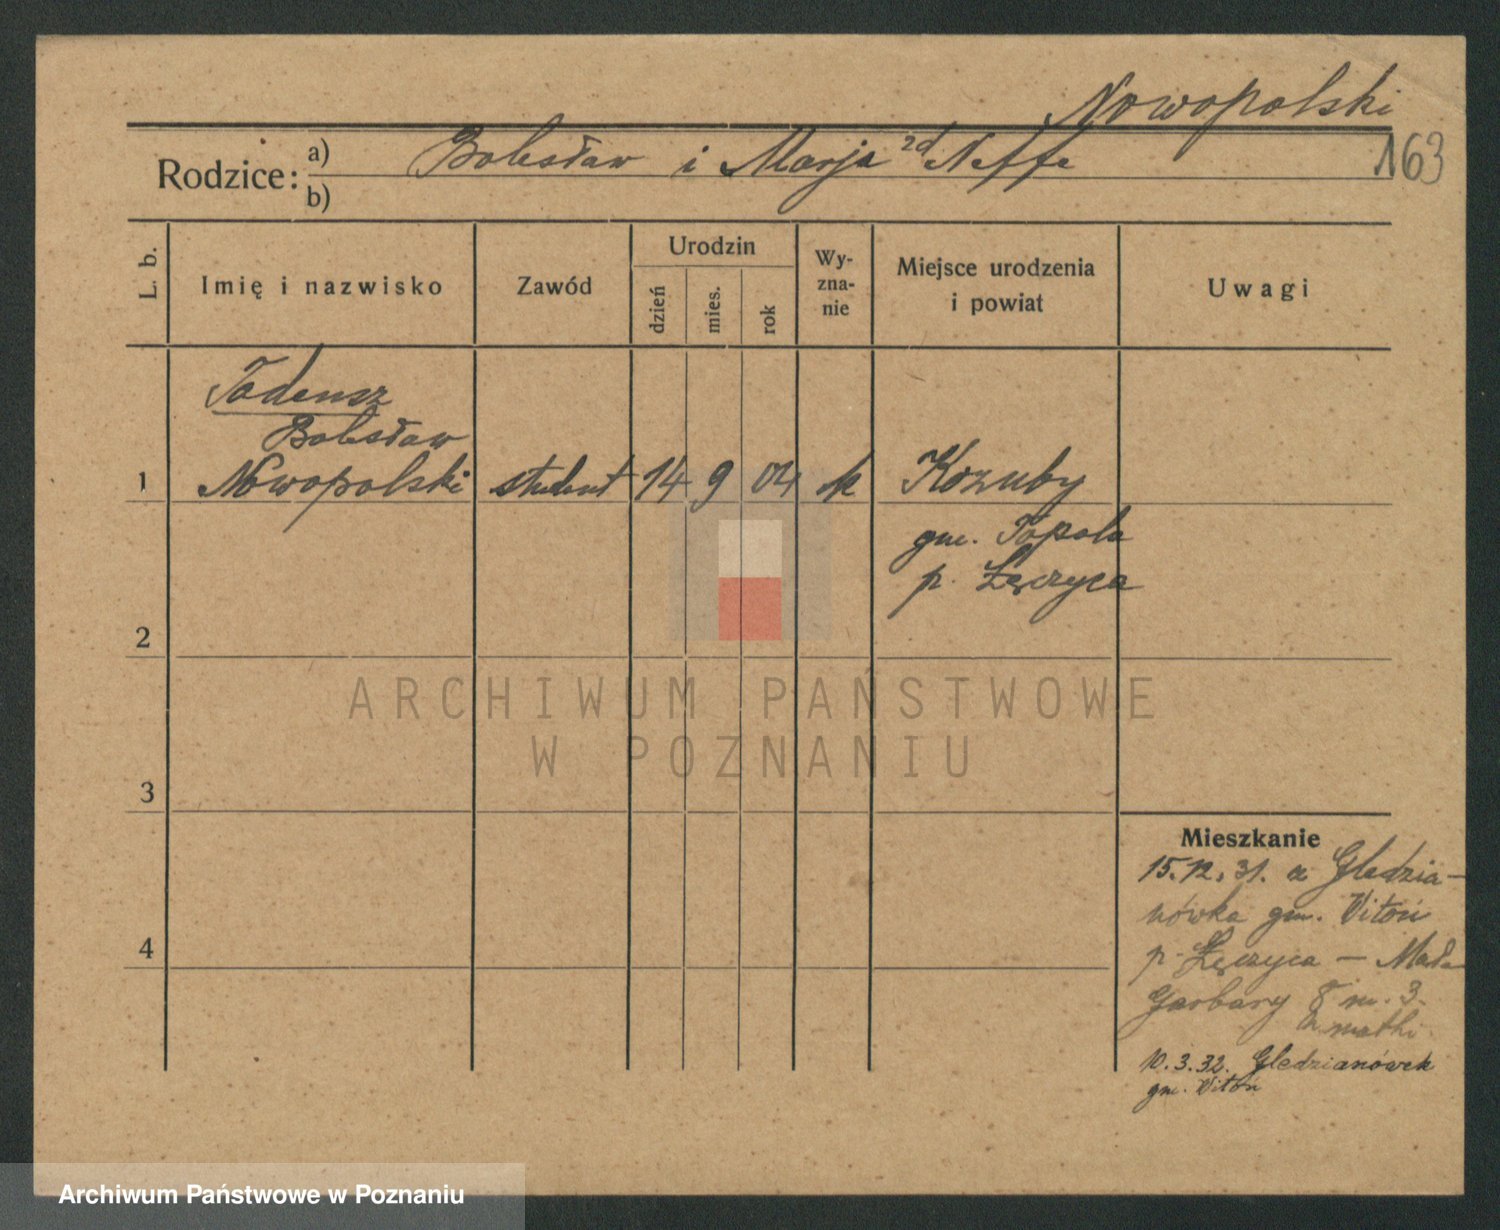 Nowopolski
163
Rodzice:
a) Bolesław i Marja zd Neffe
b)
L. b.
Imię i nazwisko
Zawód
Urodzin
dzień
mies.
rok
Wy-
zna-
nie
Miejsce urodzenia
i powiat
Uwagi
Tadeusz
Bolesław
1 Nowopolski student 14 9 04 k Kozuby
gm. Topola
p. Łęczyca
2
3
4
Mieszkanie
15.12.31. z Gledzia-
nówka gm. Witoń
p. Łęczyca — Mała
Garbary 8 m. 3.
u matki
10.3.32. Gledzianówek
gm. Witoń
ARCHIWUM PAŃSTWOWE
W POZNANIU
Archiwum Państwowe w Poznaniu